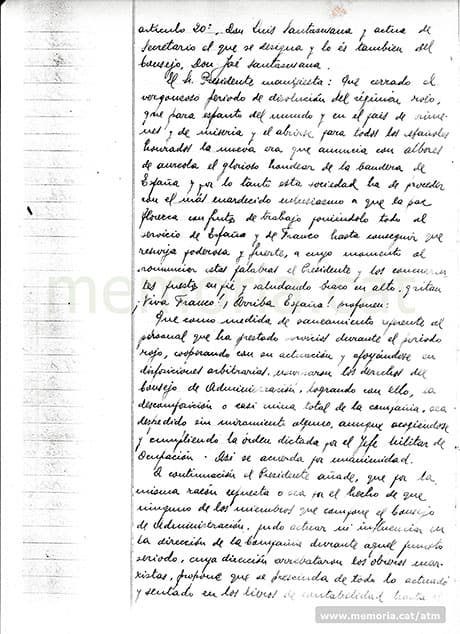 artículo 20º, Don Luis Santasusana y actua de
Secretario el que se designa y lo és tambien del
Consejo, Don José Santasusana.
El Sr. Presidente manifiesta: Que cerrado el
vergonzoso periodo de disolución del régimen rojo,
que para espanto del mundo y en el pais de crime-
nes y de miseria y al abrirse para todos los españoles
honrados la nueva era que anuncia con albores
de aureola el glorioso hondear de la bandera de
España y por lo tanto esta sociedad ha de proceder
con el más enardecido entusiasmo a que la paz
florezca con frutos de trabajo poniéndolo todo al
servicio de España y de Franco hasta conseguir que
resurja poderosa y fuerte, a cuyo momento al
pronunciar estas palabras el Presidente y los concurren-
tes puestos en pié y saludando brazo en alto, gritan
¡Viva Franco! ¡Arriba España! profieren:
Que como medida de saneamiento referente al
personal que ha prestado servicios durante el periodo
rojo, cooperando con su actuación y apoyándose en
disposiciones arbitrarias, usurparon los derechos del
Consejo de Administración, logrando con ello, la
descomposición o casi ruina total de la compañía, sea
despedido sin miramiento alguno, aunque acogiéndose
y cumpliendo la órden dictada por el Jefe Militar de
Ocupación. Asi se acuerda por unanimidad.
A continuación el Presidente añade, que por la
misma razón expuesta o sea por el hecho de que
ninguno de los miembros que compone el Consejo
de Administración, pudo actuar ni influenciar en
la dirección de la Compañía durante aquel funesto
periodo, cuya dirección arrebataron los obreros mar-
xistas, propone que se prescinda de todo lo actuado
y sentado en los libros de contabilidad hasta
memoria.cat
www.memoria.cat/atm